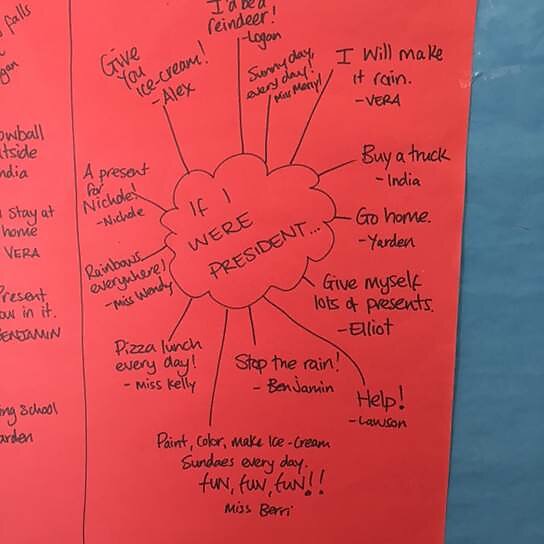 falls
owball
tside
ndia
stay at
home
VERA
resent
ow in it.
ENJAMIN
ing school
arden
I'd be a
reindeer!
-Logan
Give
You
ice-cream!
-Alex
Sunny day,
every day!
Miss Merryl
I will make
it rain.
-VERA
A present
for
Nichole!
-Nichole
Buy a truck
-India
IF I
WERE
PRESIDENT...
Go home.
-Yarden
Rainbows
everywhere!
-Miss Wendy
Give myself
lots of presents.
-Elliot
Pizza lunch
every day!
-Miss Kelly
Stop the rain!
-Benjamin
Help!
-Lawson
Paint, Color, make Ice-Cream
Sundaes every day.
fUN, fUN, fUN!!
Miss Berri